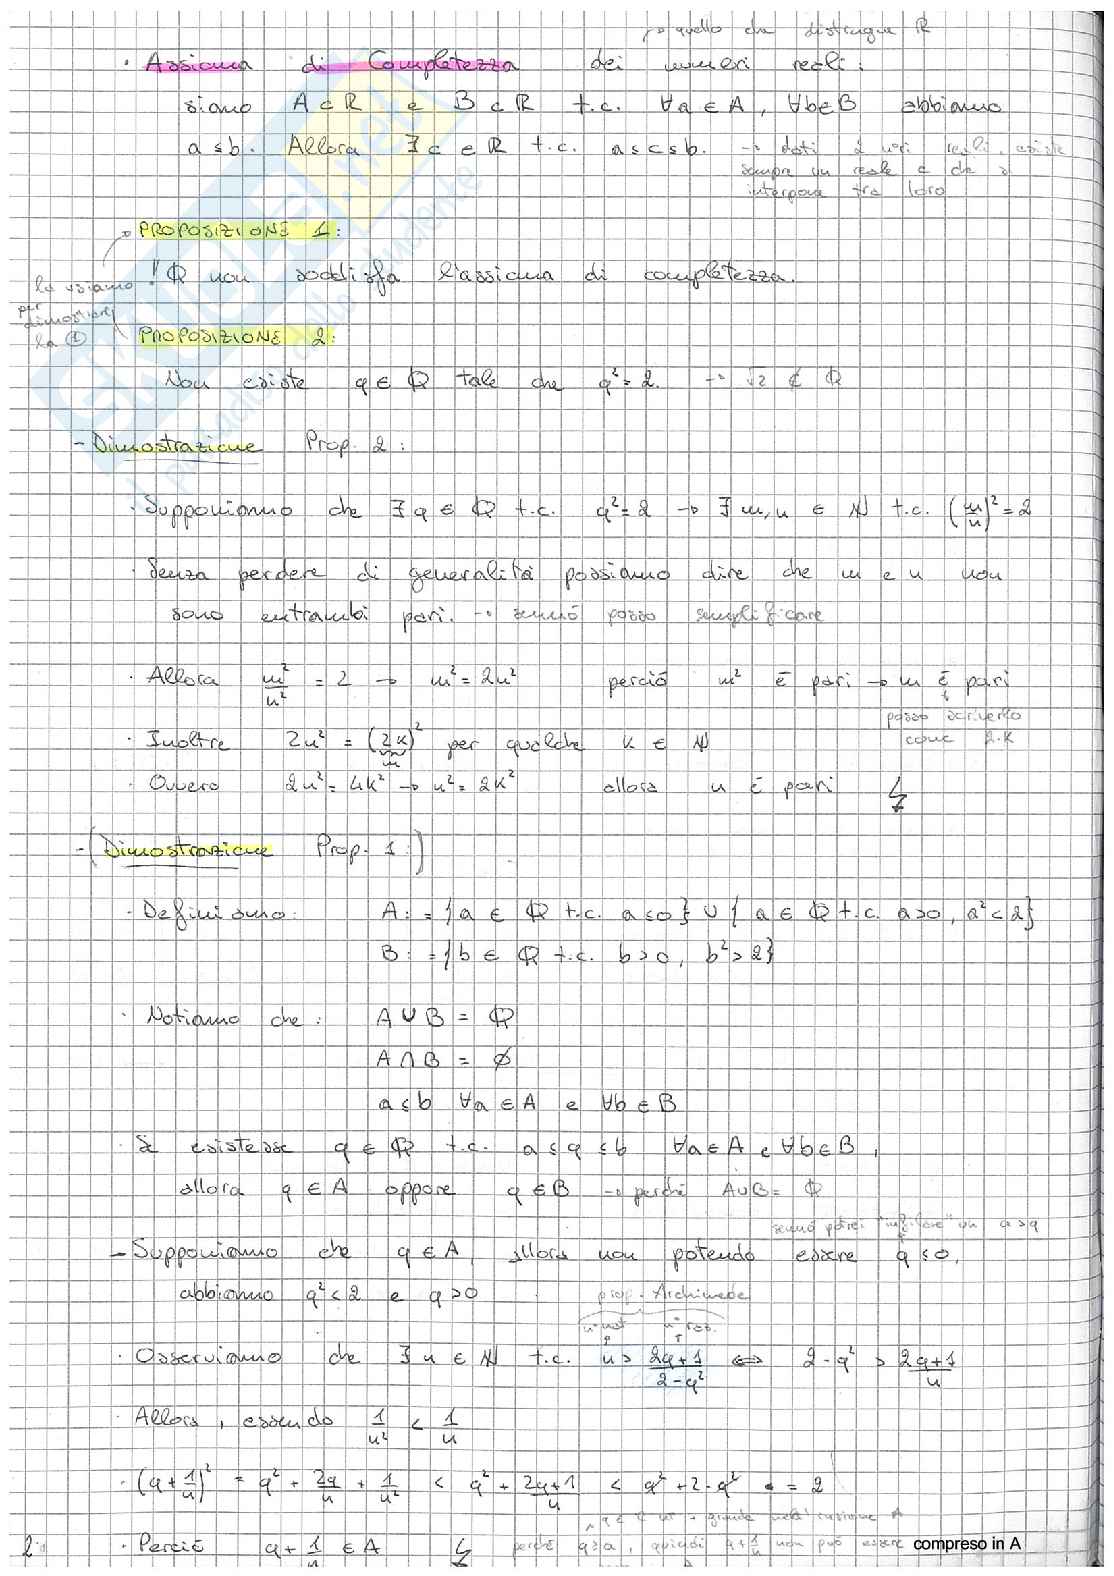 → quello che distingue ℝ
· Assioma di Completezza dei numeri reali:
siano A ⊂ ℝ e B ⊂ ℝ t.c. ∀a ∈ A, ∀b ∈ B abbiamo
a ≤ b. Allora ∃ c ∈ ℝ t.c. a ≤ c ≤ b. → dati 2 n.ri reali, esiste
sempre un reale c che si
interpone tra loro
PROPOSIZIONE 1:
! ℚ non soddisfa l'assioma di completezza.
la usiamo
per
dimostrare
la ①
PROPOSIZIONE 2:
Non esiste q ∈ ℚ tale che q² = 2. → √2 ∉ ℚ
- Dimostrazione Prop. 2:
· Supponiamo che ∃ q ∈ ℚ t.c. q² = 2 → ∃ m, n ∈ ℕ t.c. (m/n)² = 2
· Senza perdere di generalità possiamo dire che m e n non
sono entrambi pari. → sennò posso semplificare
· Allora m²/n² = 2 → m² = 2n² perciò m² è pari → m è pari
posso scriverlo
come 2·K
· Inoltre 2n² = (2K)² per qualche K ∈ ℕ
m
· Ovvero 2n² = 4K² → n² = 2K² allora n è pari ↯
- (Dimostrazione Prop. 1:)
· Definiamo: A := {a ∈ ℚ t.c. a ≤ 0} ∪ {a ∈ ℚ t.c. a > 0, a² < 2}
B := {b ∈ ℚ t.c. b > 0, b² > 2}
· Notiamo che: A ∪ B = ℚ
A ∩ B = ∅
a ≤ b ∀a ∈ A e ∀b ∈ B
· Se esistesse q ∈ ℚ t.c. a ≤ q ≤ b ∀a ∈ A e ∀b ∈ B,
allora q ∈ A oppore q ∈ B → perché A ∪ B = ℚ
sennò potrei "infilare" un a > q
- Supponiamo che q ∈ A, allora non potendo essere q ≤ 0,
abbiamo q² < 2 e q > 0
prop. Archimede
n° nat n° raz.
· Osserviamo che ∃ n ∈ ℕ t.c. n > (2q+1)/(2-q²) ⟺ 2-q² > (2q+1)/n
· Allora, essendo 1/n² < 1/n
· (q + 1/n)² = q² + 2q/n + 1/n² < q² + (2q+1)/n < q² + 2 - q² = 2
grande nell'insieme A
· Perciò q + 1/n ∈ A ↯ perché q ≥ a, quindi q + 1/n non può essere compreso in A
SKUOLA.net
il paradiso dello studente